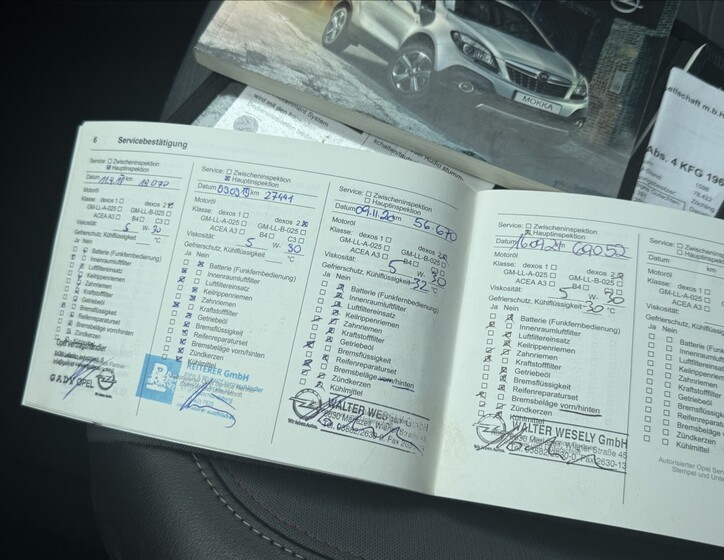 MOKKA
Abs. 4 KFG 196
6 Servicebestätigung
Service: ☐ Zwischeninspektion
☒ Hauptinspektion
Datum km
Motoröl
Klasse: dexos 1 ☐ dexos 2 ☒
GM-LL-A-025 ☐ GM-LL-B-025 ☐
ACEA A3 ☐ B4 ☐ C3 ☐
Viskosität: 5 W- 30
Gefrierschutz, Kühlflüssigkeit °C
Ja Nein
Batterie (Funkfernbedienung)
Innenraumluftfilter
Luftfiltereinsatz
Keilrippenriemen
Zahnriemen
Kraftstofffilter
Getriebeöl
Bremsflüssigkeit
Reifenreparaturset
Bremsbeläge vorn/hinten
Zündkerzen
Kühlmittel
OPEL
Service: ☐ Zwischeninspektion
☒ Hauptinspektion
Datum km 27441
Motoröl
Klasse: dexos 1 ☐ dexos 2 ☒
GM-LL-A-025 ☐ GM-LL-B-025 ☐
ACEA A3 ☐ B4 ☐ C3 ☐
Viskosität: 5 W- 30
Gefrierschutz, Kühlflüssigkeit °C
Ja Nein
Batterie (Funkfernbedienung)
Innenraumluftfilter
Luftfiltereinsatz
Keilrippenriemen
Zahnriemen
Kraftstofffilter
Getriebeöl
Bremsflüssigkeit
Reifenreparaturset
Bremsbeläge vorn/hinten
Zündkerzen
Kühlmittel
REITERER GmbH
Service: ☐ Zwischeninspektion
☐ Hauptinspektion
Datum 09.11.20 km 56.670
Motoröl
Klasse: dexos 1 ☐ dexos 2 ☒
GM-LL-A-025 ☐ GM-LL-B-025 ☐
ACEA A3 ☐ B4 ☐ C3 ☐
Viskosität: 5 W- 30
Gefrierschutz, Kühlflüssigkeit -32 °C
Ja Nein
Batterie (Funkfernbedienung)
Innenraumluftfilter
Luftfiltereinsatz
Keilrippenriemen
Zahnriemen
Kraftstofffilter
Getriebeöl
Bremsflüssigkeit
Reifenreparaturset
Bremsbeläge vorn/hinten
Zündkerzen
Kühlmittel
WALTER WESELY GmbH
Service: ☐ Zwischeninspektion
☒ Hauptinspektion
Datum km 69052
Motoröl
Klasse: dexos 1 ☐ dexos 2 ☒
GM-LL-A-025 ☐ GM-LL-B-025 ☐
ACEA A3 ☐ B4 ☐ C3 ☐
Viskosität: 5 W- 30
Gefrierschutz, Kühlflüssigkeit -30 °C
Ja Nein
Batterie (Funkfernbedienung)
Innenraumluftfilter
Luftfiltereinsatz
Keilrippenriemen
Zahnriemen
Kraftstofffilter
Getriebeöl
Bremsflüssigkeit
Reifenreparaturset
Bremsbeläge vorn/hinten
Zündkerzen
Kühlmittel
WALTER WESELY GmbH
Service: ☐
☐
Datum
Motoröl
Klasse: dexos 1 ☐
GM-LL-A-025 ☐
ACEA A3 ☐
Viskosität:
Gefrierschutz, Kühlflüssig
Ja Nein
Batterie (Funk
Innenraumluft
Luftfiltereinsatz
Keilrippenriemen
Zahnriemen
Kraftstofffilter
Getriebeöl
Bremsflüssigkeit
Reifenreparaturs
Bremsbeläge vorn
Zündkerzen
Kühlmittel
Autorisierter Opel Ser
Stempel und Unters